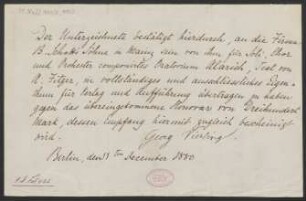 Der Unterzeichnete bestätigt hierdurch, an die Firma
B. Schott's Söhne in Mainz sein von ihm für Soli, Chor
und Orchester componirtes Oratorium Alarich, Text von
A. Fitger, in vollständiges und ausschliessliches Eigen-
thum für Verlag und Aufführung übertragen zu haben
gegen das übereingekommene Honorar von Dreihundert
Mark, dessen Empfang hiermit zugleich bescheinigt
wird.
Georg Vierling
Berlin, den 1ten December 1880